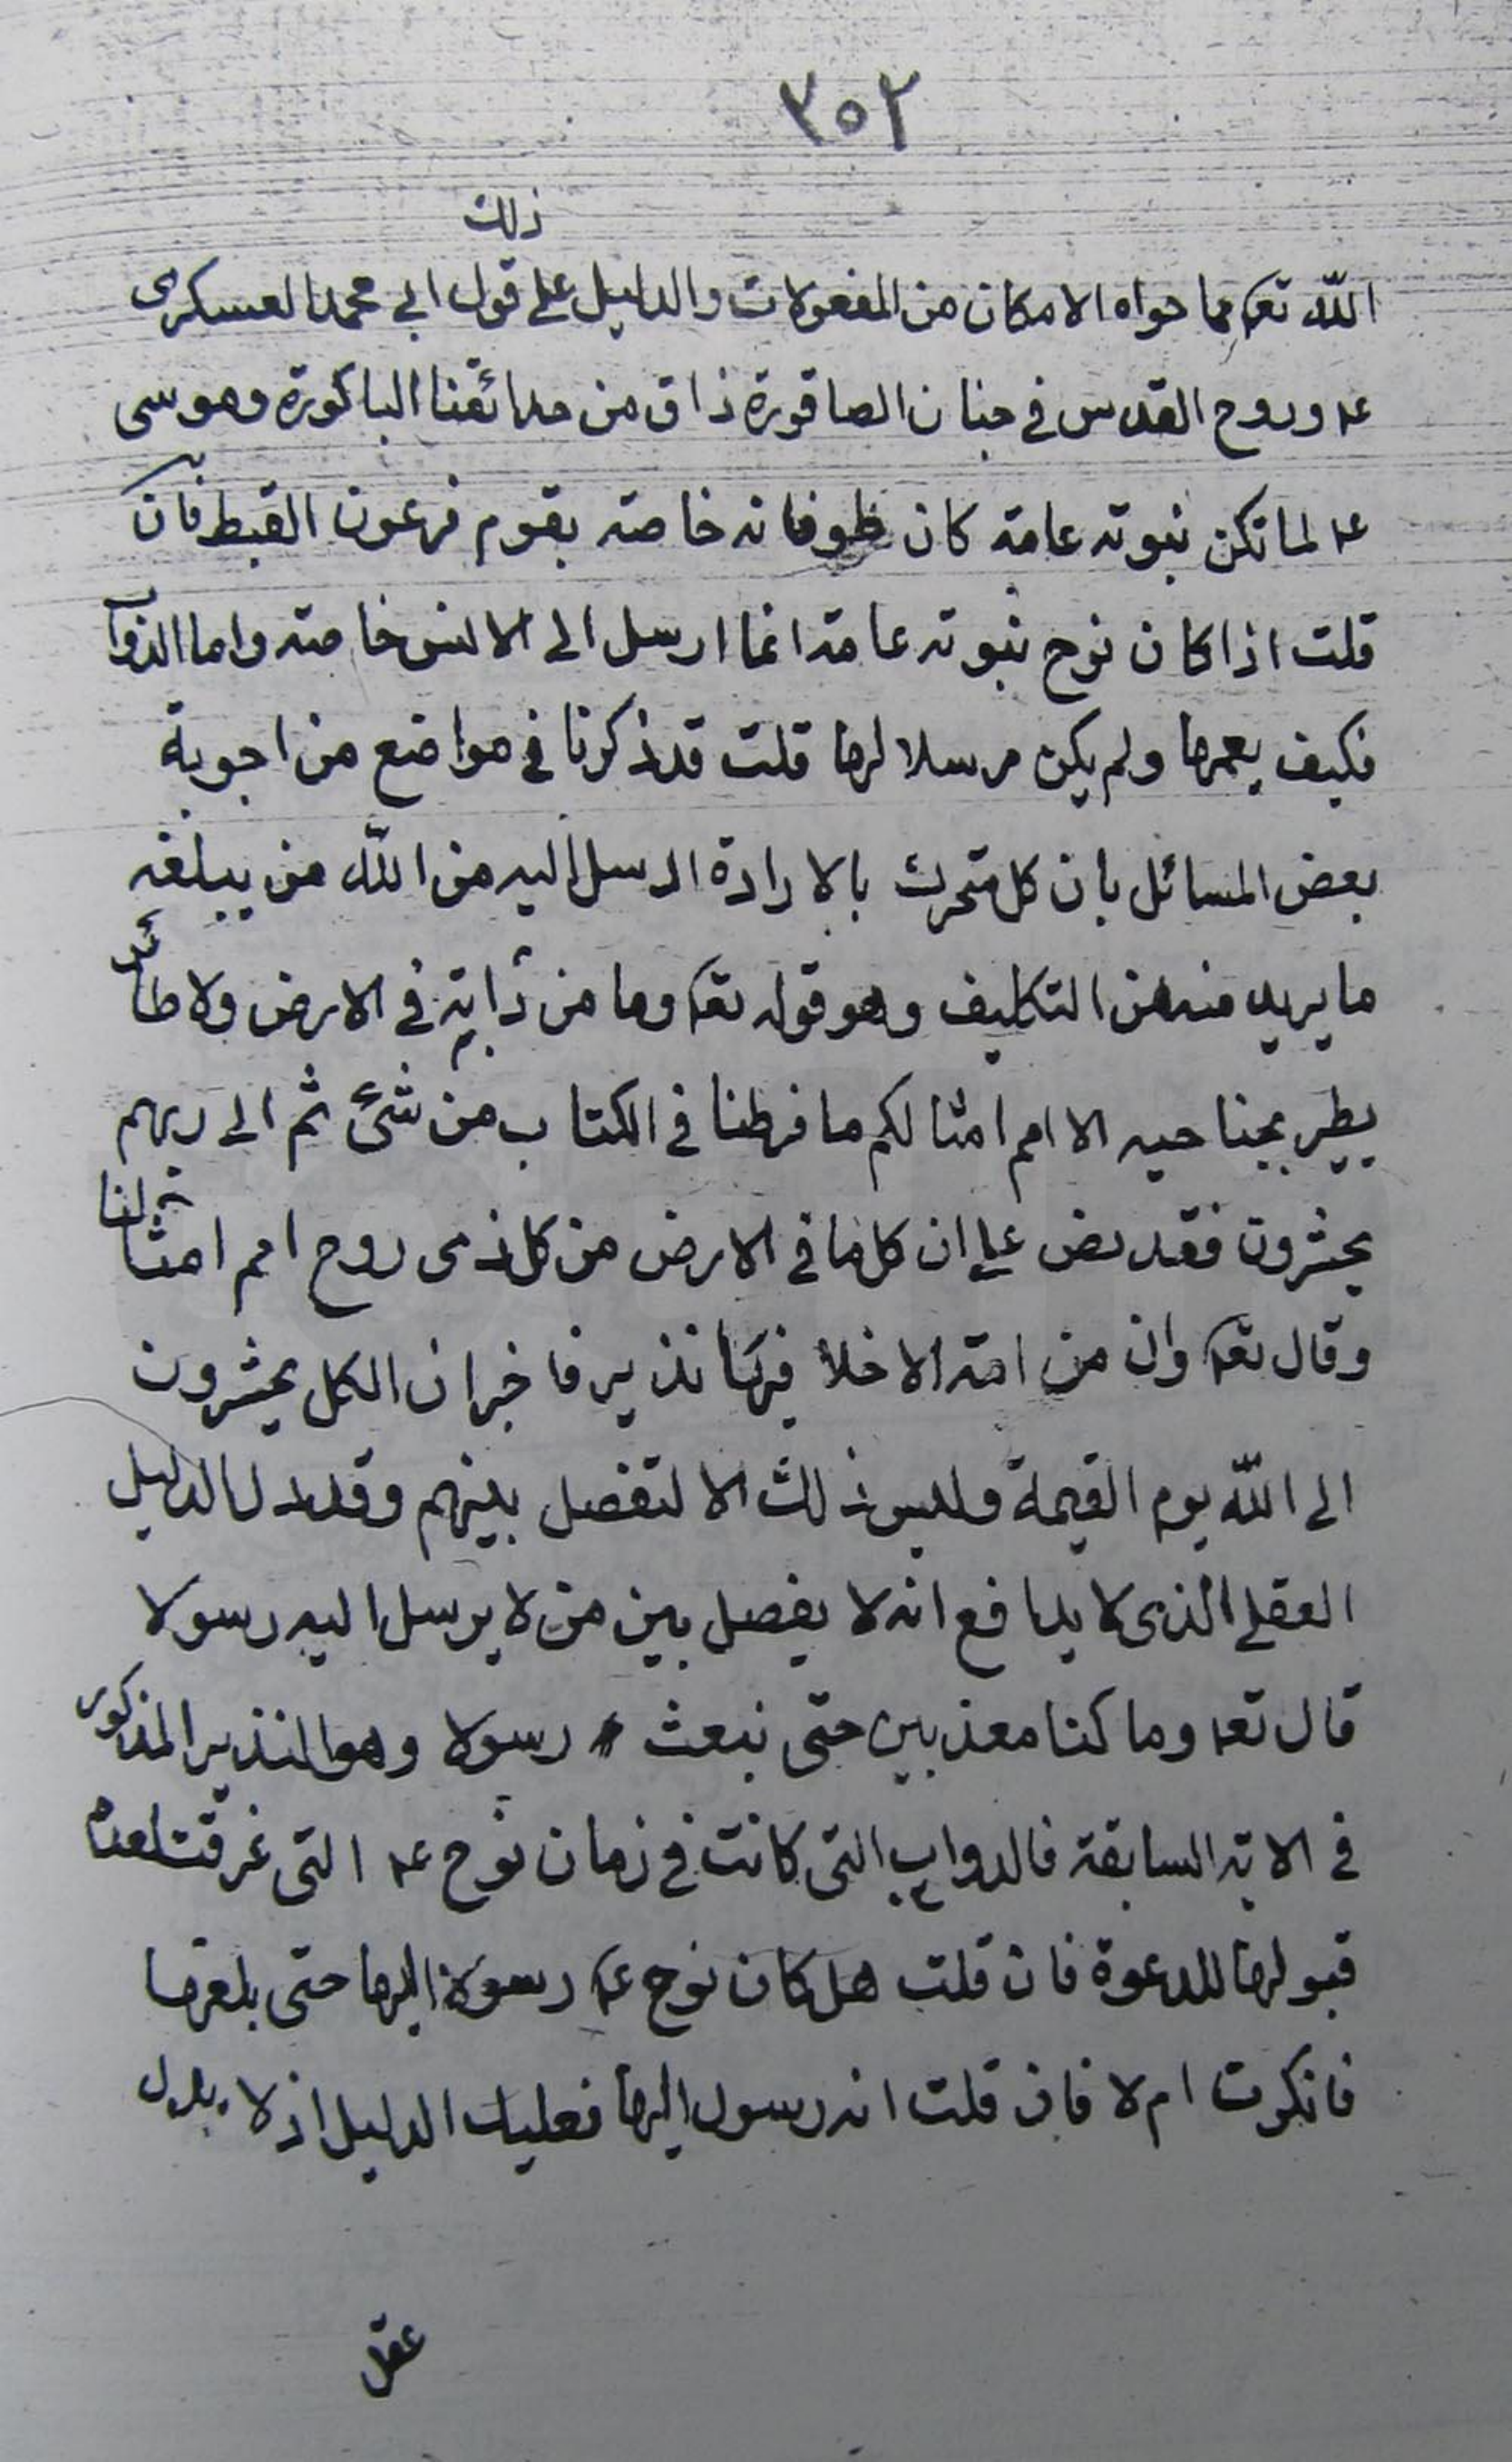 ٣٥٢
ذلك
الله تعـ مما حواه الامكان من المفعولات والدليل على قول ابي محمد العسكرى
عـ وروح القدس في جنان الصاقورة ذاق من حدائقنا الباكورة وموسى
عـ لما تكن نبوته عامة كان طوفانه خاصه بقوم فرعون القبط فان
قلت اذا كان نوح نبوته عامة انما ارسل الى الانس خاصته واما الدواب
فكيف يعمها ولم يكن مرسلا لها قلت قد ذكرنا في مواضع من اجوبة
بعض المسائل بان كل متحرك بالارادة ارسل اليه من الله من يبلغه
ما يريد منه من التكليف وهو قوله تعـ وما من دابة في الارض ولا طائر
يطير بجناحيه الا امم امثالكم ما فرطنا في الكتاب من شئ ثم الى ربهم
يحشرون فقد نص على ان كل ما في الارض من كل ذى روح امم امثالنا
وقال تعـ وان من امة الا خلا فيها نذير فاخبر ان الكل يحشرون
الى الله يوم القيمة وليس ذلك الا لتفصل بينهم وقد دل الدليل
العقلي الذى لا يدافع انه لا يفصل بين من لا يرسل اليه رسولا
قال تعـ وما كنا معذبين حتى نبعث رسولا وهو النذير المذكور
في الاية السابقة فالدواب التى كانت في زمان نوح عـ التى غرقت لعدم
قبولها للدعوة فان قلت هل كان نوح عـ رسولا اليها حتى بلغها
فانكرت ام لا فان قلت انه رسول اليها فعليك الدليل اذ لا يدل
عقل